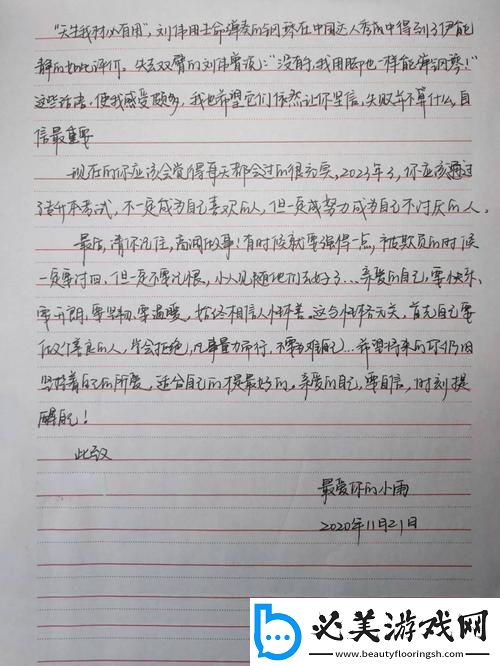 "天生我材必有用",刘伟用生命弹奏的钢琴在中国达人秀成中得到了伊能
静的如此评价。失去双臂的刘伟曾说:"没有手,我用脚也一样能弹钢琴!"
这些话语,使我感受颇多,我也希望它们依然让你坚信,失败并不算什么,自
信最重要
现在的你应该会觉得每天都会过的很充实,2023年了,你应该通过
专升本考试,不一定成为自己喜欢的人,但一定成努力成为自己不讨厌的人。
最后,请你记住,高调做事!有时候就要强得一点,被欺负的时候
一定要讨回,但一定不要记恨,小人见随他们去好了…亲爱的自己,要快乐、
要开朗,要坚韧,要温暖,始终相信人性本善。这与性格无关,首先自己要
做个善良的人,学会拒绝,凡事量力而行,不要为难自己…希望将来的你仍旧
坚持着自己的所爱,适合自己的才是最好的。亲爱的自己,要自信,时刻提
醒自己!
此致
最爱你的小雨
2020年11月21日
必美游戏网
www.beautyflooringsh.com